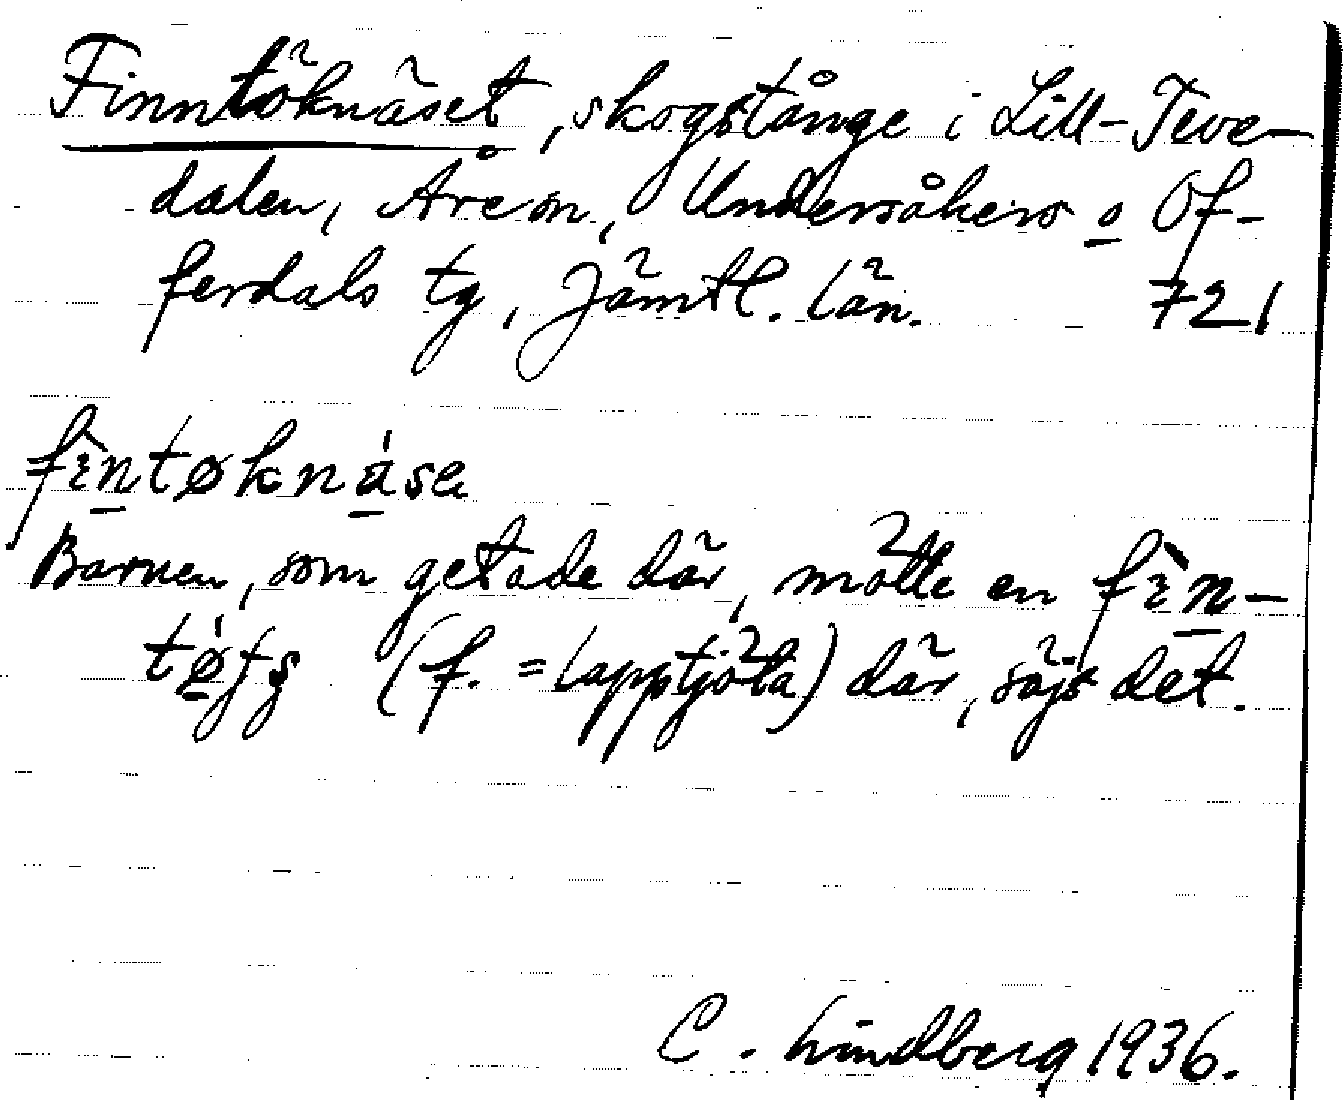 Finntöknäset, skogstånge i Lill-Teve-
dalen, Åre sn, Undersåkers o Of-
ferdals tg, Jämtl. län. 721
fìntøknásе
Barnen, som getade där, mötte en fìn-
(f. = lapptjöta) där, säjs det.
C. Lindberg 1936.